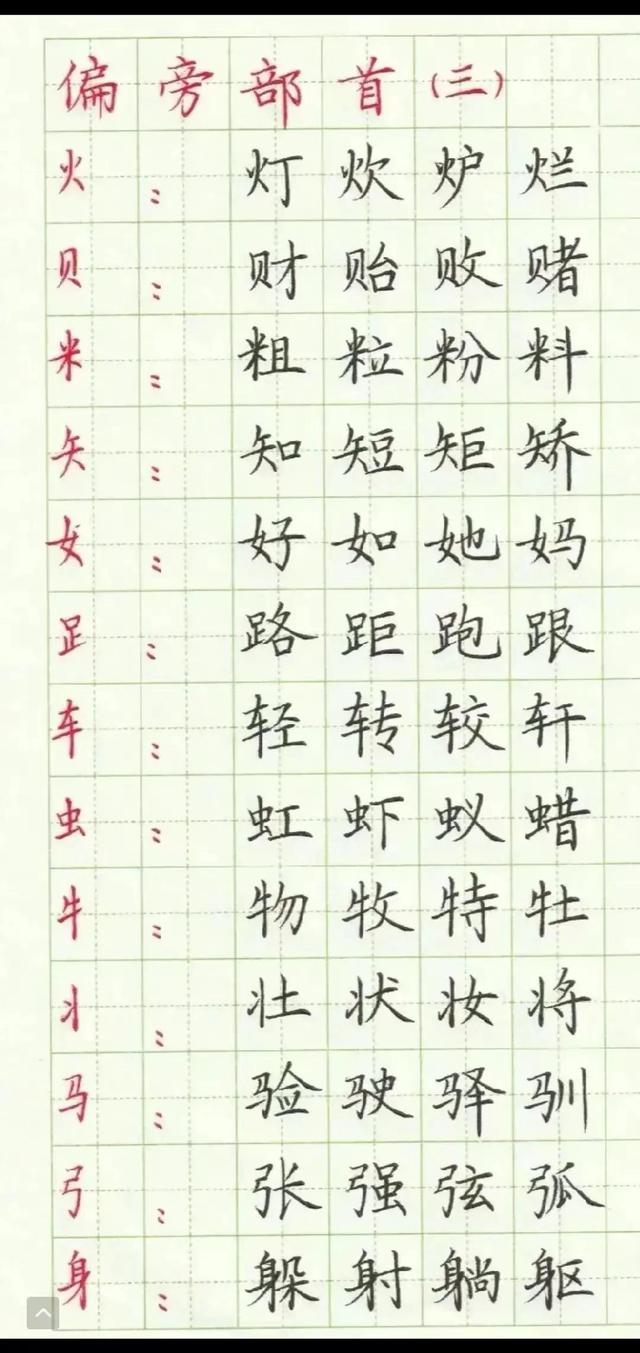 偏旁部首(三)
火：灯炊炉烂
贝：财贻败赌
米：粗粒粉料
矢：知短矩矫
女：好如她妈
𧾷：路距跑跟
车：轻转较轩
虫：虹虾蚁蜡
牛：物牧特牡
丬：壮状妆将
马：验驶驿驯
弓：张强弦弧
身：躲射躺躯